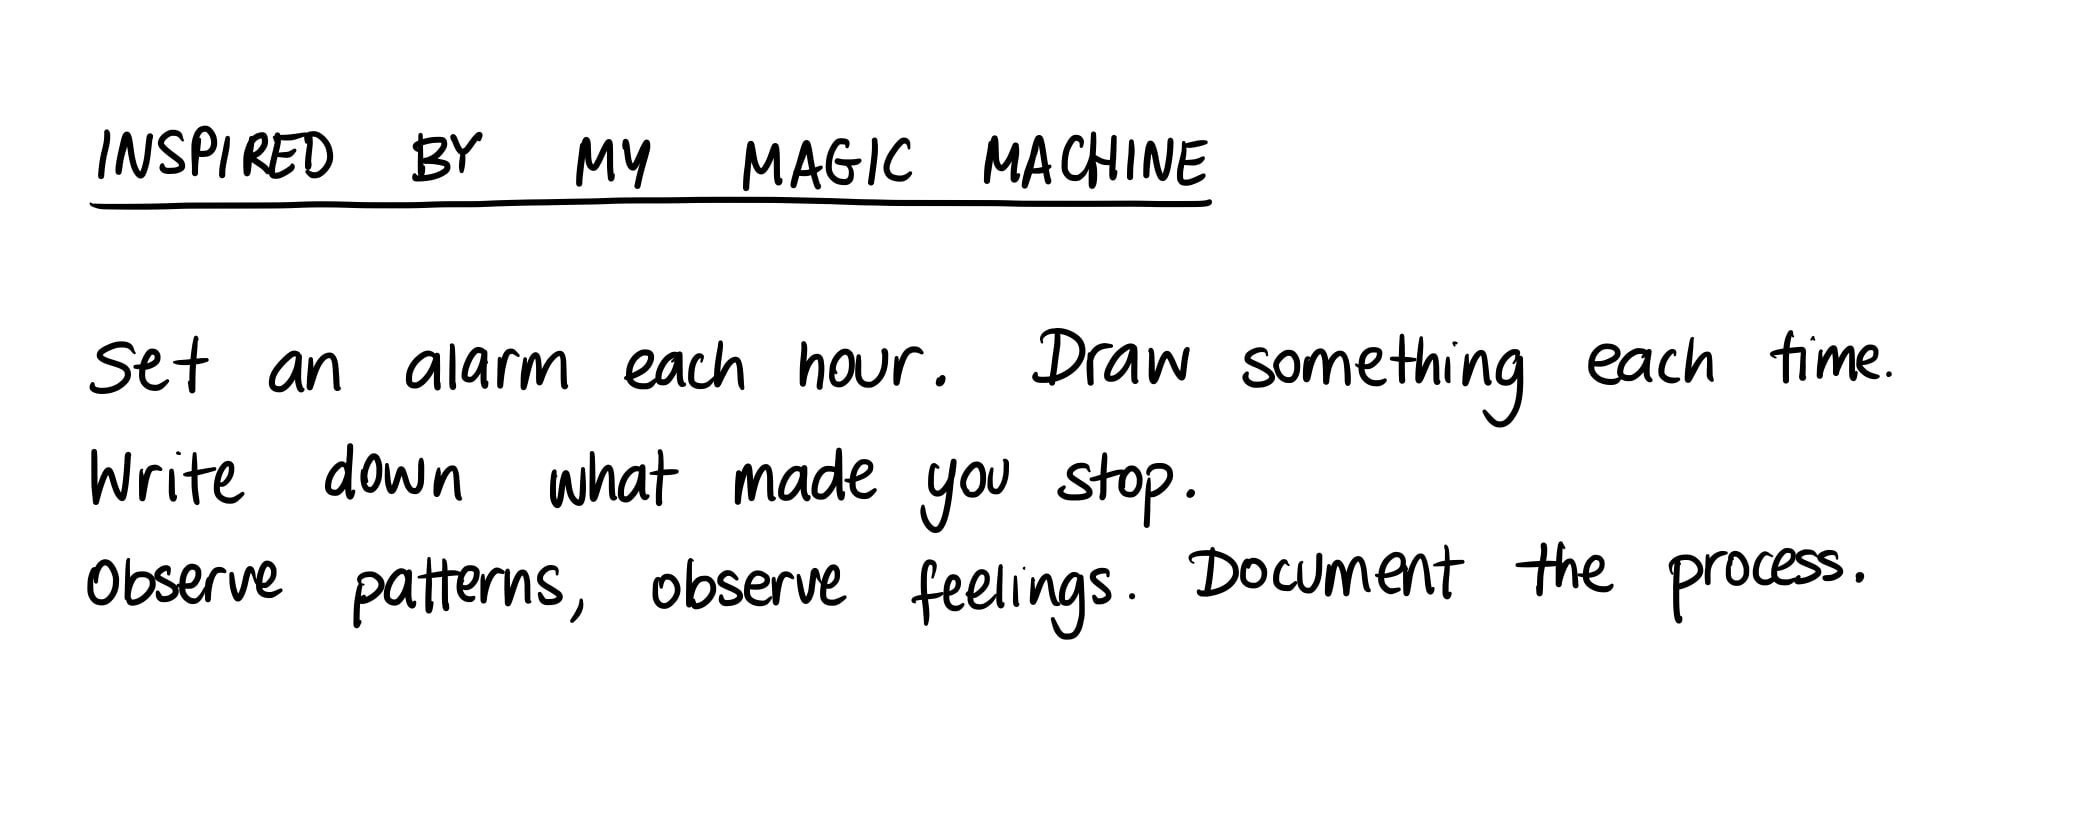 INSPIRED BY MY MAGIC MACHINE
Set an alarm each hour. Draw something each time.
Write down what made you stop.
Observe patterns, observe feelings. Document the process.